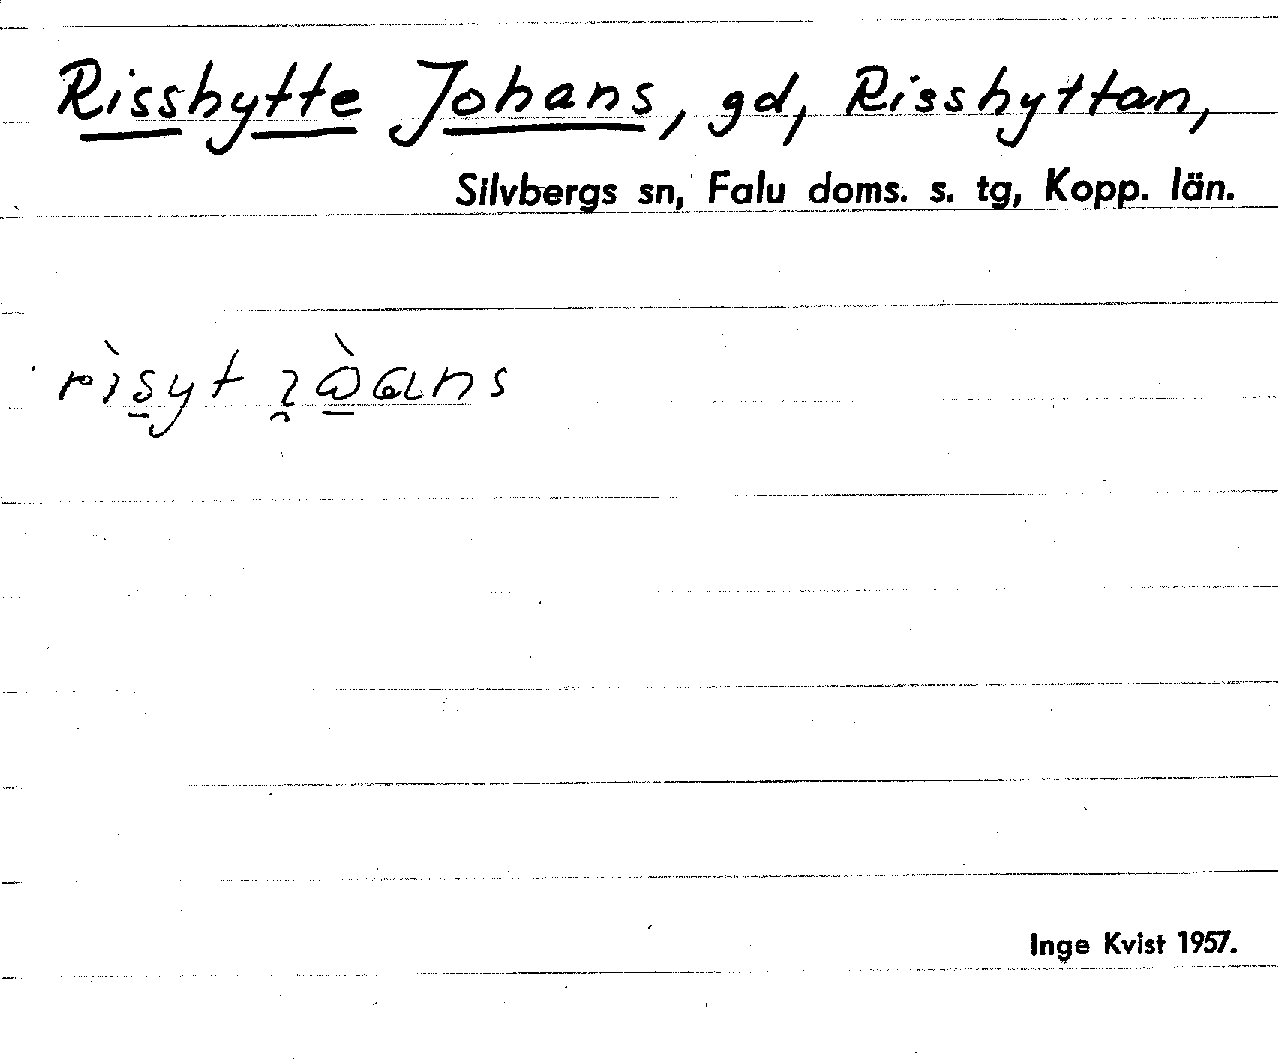 Risshytte Johans, gd, Risshyttan,
Silvbergs sn, Falu doms. s. tg, Kopp. län.
Inge Kvist 1957.